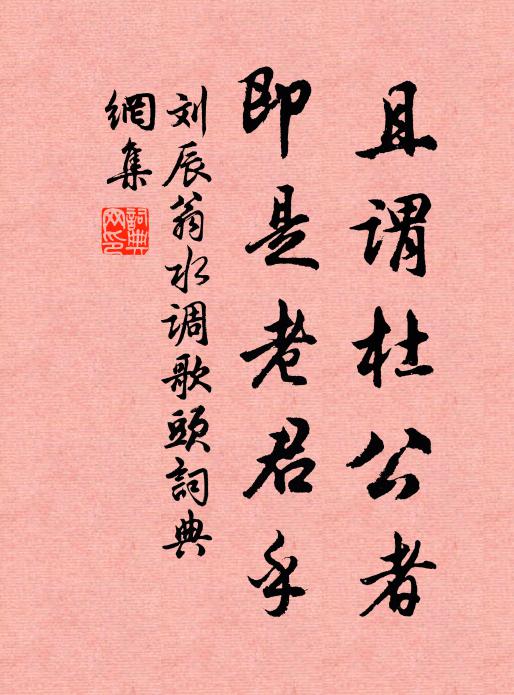 且谓杜公者
即是老君乎
刘辰翁水调歌头詞典
網集
詞典网印